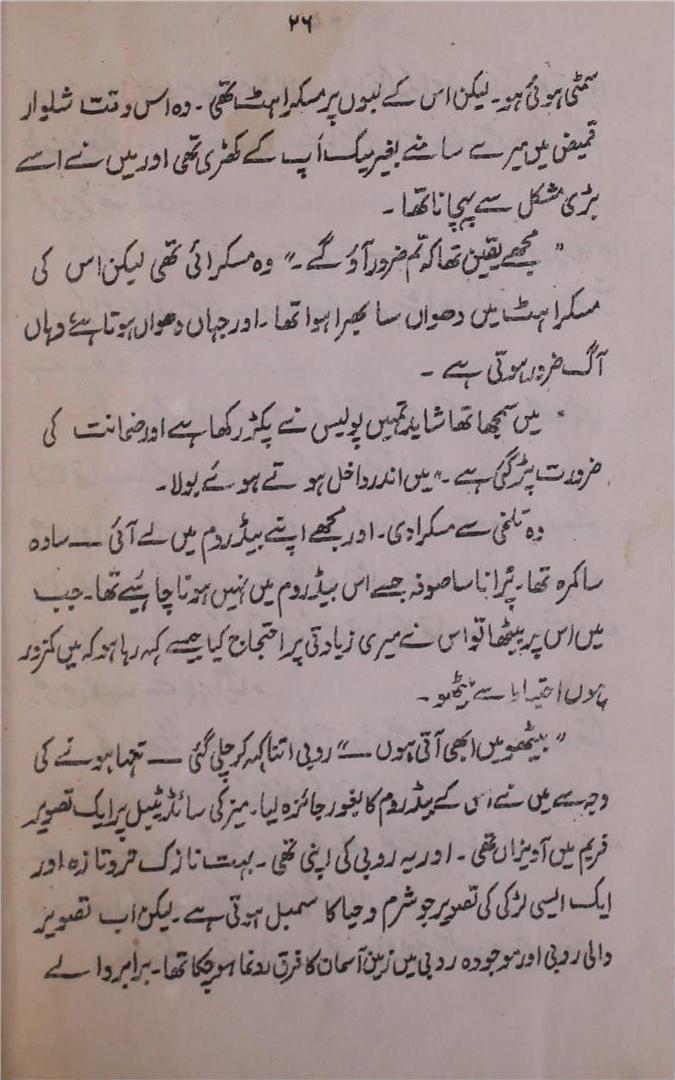 ۲۶
سمٹی ہوئی ہو۔ لیکن اس کے لبوں پر مسکراہٹ تھی ۔ وہ اس وقت شلوار
قمیض میں میرے سامنے بغیر میک اَپ کے کھڑی تھی اور میں نے اسے
بڑی مشکل سے پہچانا تھا ۔
" مجھے یقین تھا کہ تم ضرور آؤ گے ۔" وہ مسکرائی تھی لیکن اس کی
مسکراہٹ میں دھواں سا بھرا ہوا تھا ۔ اور جہاں دھواں ہوتا ہے وہاں
آگ ضرور ہوتی ہے ۔
" میں سمجھا تھا شاید تمہیں پولیس نے پکڑ رکھا ہے اور ضمانت کی
ضرورت پڑ گئی ہے ۔" میں اندر داخل ہوتے ہوئے بولا ۔
وہ تلخی سے مسکرا دی ۔ اور مجھے اپنے بیڈ روم میں لے آئی ــــ سادہ
سا کمرہ تھا ۔ پُرانا سا صوفہ جسے اس بیڈ روم میں نہیں ہونا چاہئیے تھا ۔ جب
میں اس پر بیٹھا تو اس نے میری زیادتی پر احتجاج کیا جیسے کہہ رہا ہو کہ میں کمزور
ہوں احتیاط سے بیٹھو ۔
" بیٹھو میں ابھی آتی ہوں ــــ" روبی اتنا کہہ کر چلی گئی ــــ تنہا ہونے کی
وجہ سے میں نے اس کے بیڈ روم کا بغور جائزہ لیا ۔ میز کی سائڈ ٹیبل پر ایک تصویر
فریم میں آویزاں تھی ۔ اور یہ روبی کی اپنی تھی ۔ بہت نازک تر و تازہ اور
ایک ایسی لڑکی کی تصویر جو شرم و حیا کا سمبل ہوتی ہے ۔ لیکن اب تصویر
والی روبی اور موجودہ روبی میں زمین آسمان کا فرق رونما ہو چکا تھا ۔ برابر والے